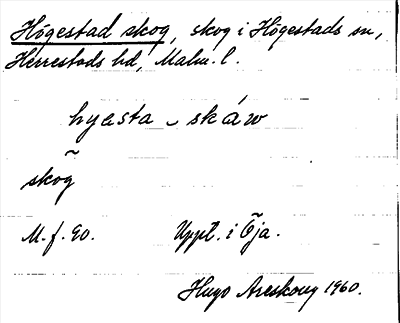 Högestad skog, skog i Högestads sn,
Herrestads hd, Malm. l.
hyasta ‿ skáw
~
skog
M. f. 90. Uppt. i Öja.
Hugo Areskoug 1960.